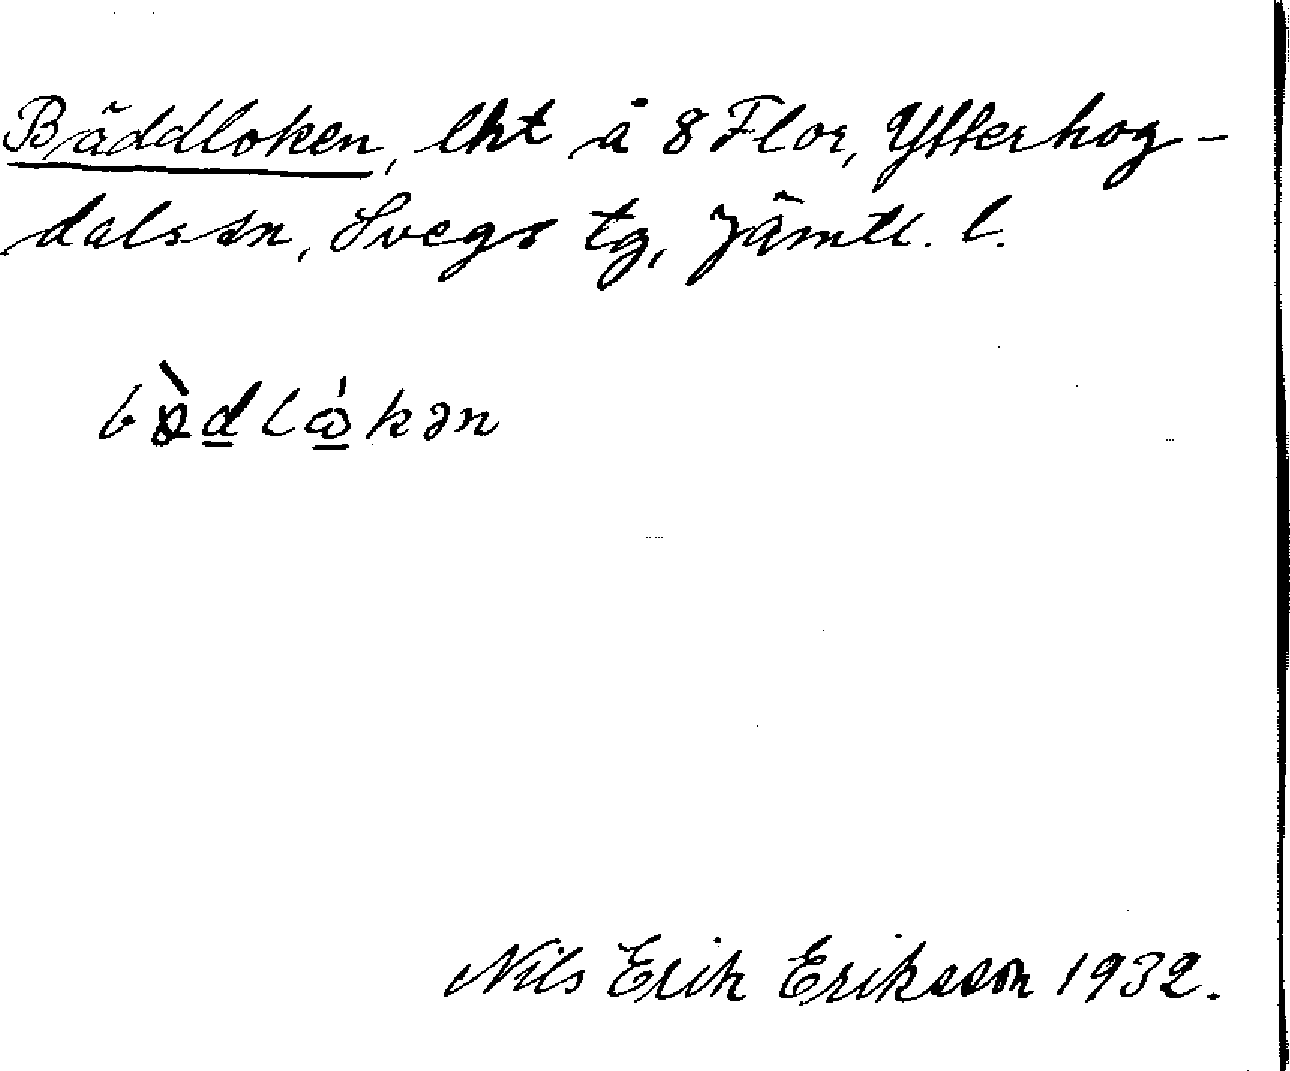 Bäddloken, lht å 8 Flor, Ytterhog-
dals sn, Svegs tg, Jämtl. l.
Nils Erik Eriksson 1932.